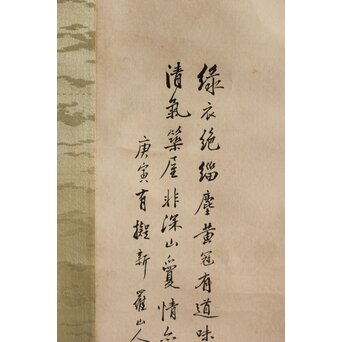 綠衣絕緇塵黃冠有道味
清氣築屋非深山愛情
庚寅有擬新羅山人